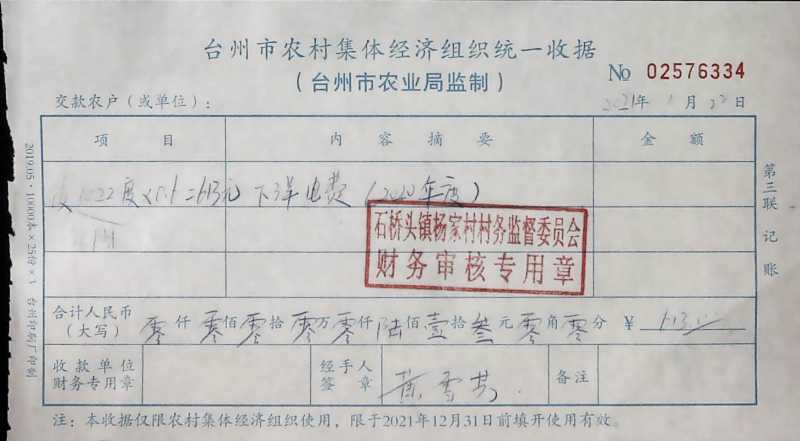 台州市农村集体经济组织统一收据
（台州市农业局监制）
No 02576334
交款农户（或单位）：
2021年 1月 22日
项目 内容摘要 金额
1022度×0.6=613元 下洋电费（2020年度）
石桥头镇杨家村村务监督委员会
财务审核专用章
合计人民币（大写） 零仟零佰零拾零万零仟陆佰壹拾叁元零角零分 ¥ 613.00
收款单位财务专用章 经手人签章 备注
注：本收据仅限农村集体经济组织使用，限于2021年12月31日前填开使用有效。
第三联 记账
2019.05·10000本×25份×3 台州印刷厂印制